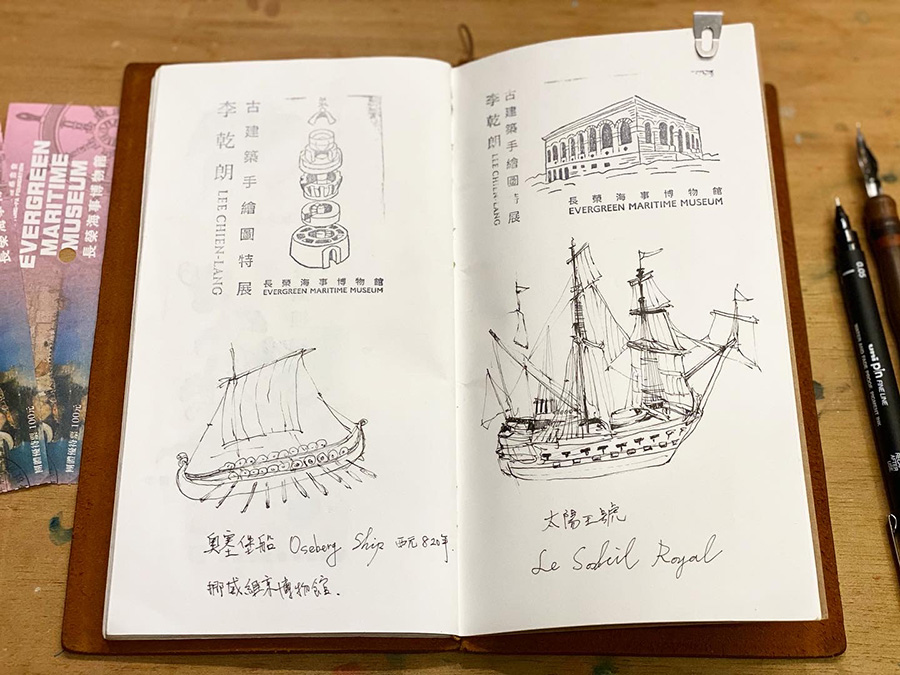 EVERGREEN
MARITIME
MUSEUM
長榮海事博物館
團體優待票 100元
古建築手繪圖特展
李乾朗 LEE CHIEN-LANG
長榮海事博物館
EVERGREEN MARITIME MUSEUM
奧塞堡船 Oseberg Ship 西元820年.
挪威維京博物館.
古建築手繪圖特展
李乾朗 LEE CHIEN-LANG
長榮海事博物館
EVERGREEN MARITIME MUSEUM
太陽王號
Le Soleil Royal
0.05
uni pin FINE LINE
WATER AND FADE PROOF PIGMENT INK